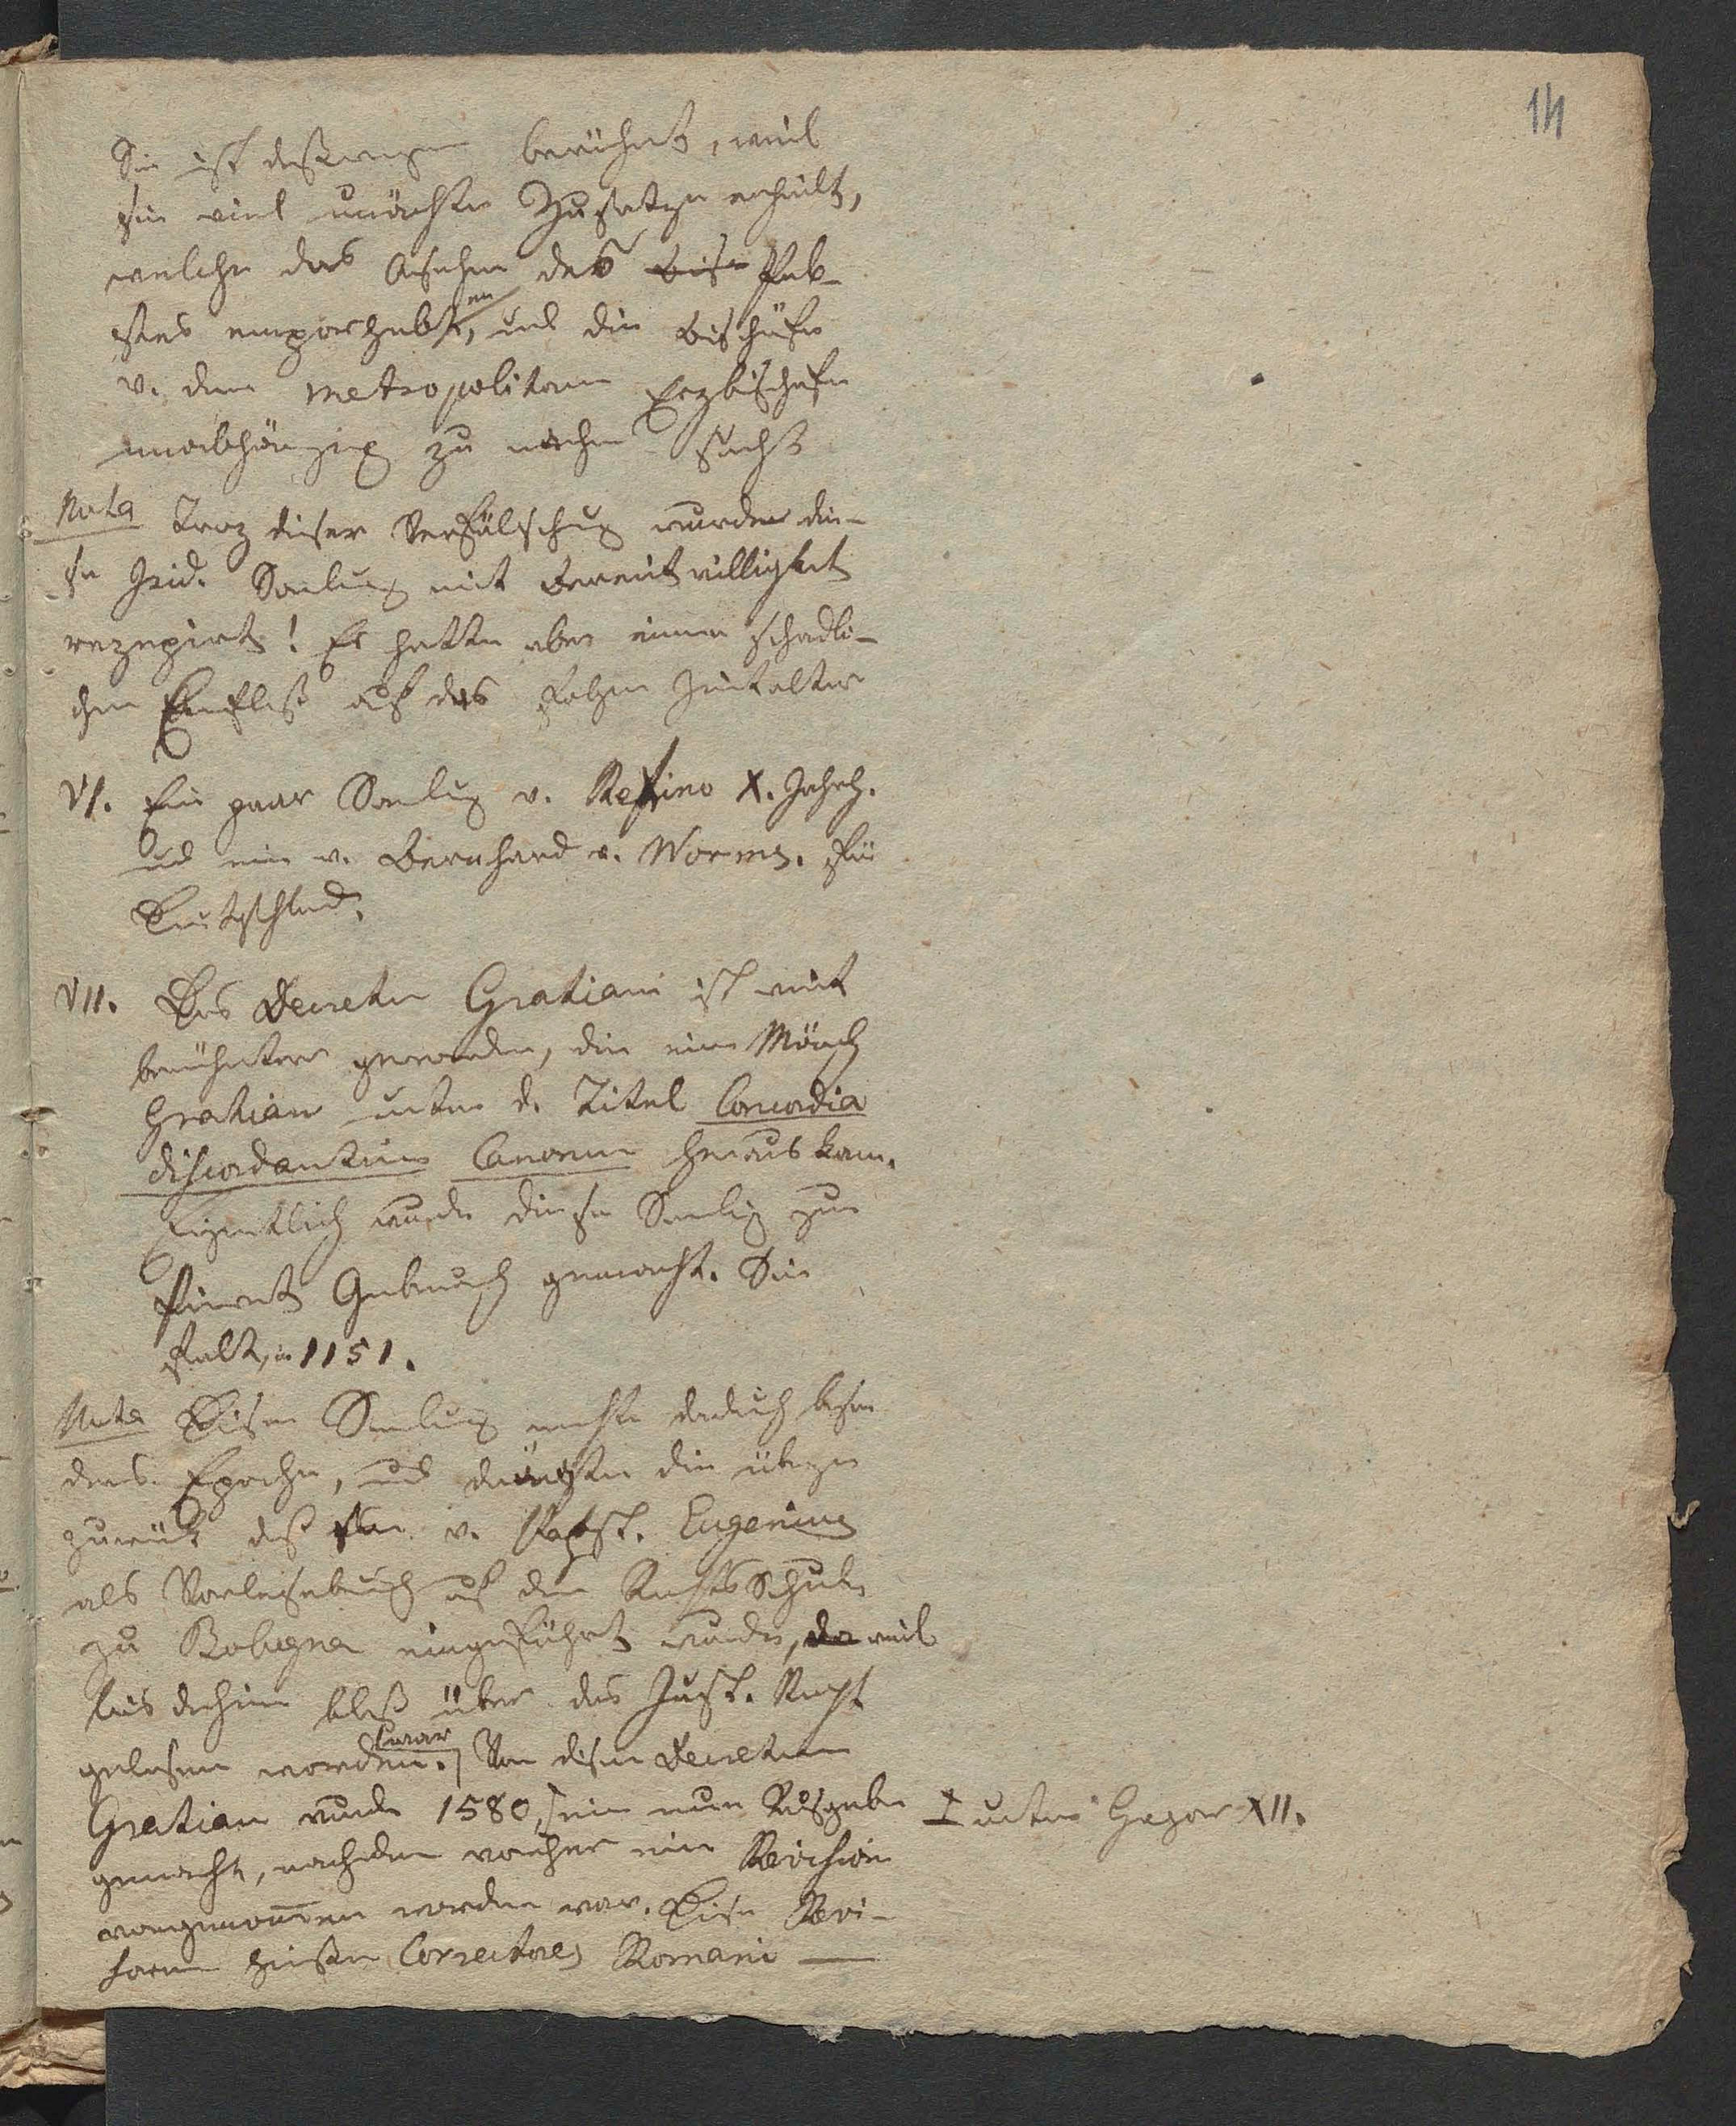 14
Sie ist deßwegen berühmt, weil
sie viel unächte Zusatze enthält,
welche das Ansehen des bis Pab-
stes emporhebten, und die Bischöfe
v. den Metropolitan Erzbischofen
unabhängig zu machen sucht
Nota Troz dieser Verfälschug wurde die-
se Isid. Samlung mit Bereitwilligkeit
rezepirt! Es hatte aber einen schadli-
chen Einfluß auf das folgen Zeitalter
VI. Ein paar Samlug v. Regino X. Jahrh.
und eine v. Bernhard v. Worms. für
Deutschland.
VII. Das Decretu Gratiani ist weit
berühmter geworden, die ein Mönch
Gratian unter d. Titel Concordia
discordantium Canonum heraus kam.
Eigentlich wurde diese Samlug zum
Privat Gebrauch gemacht. Sie
fallt, in 1151.
Nota Diese Samlung machte dadurch beson
ders Epoche, und drängte die übrigen
zurük daß sie v. Pabst. Eugenius
als Vorlesebuch auf der Rechts Schule
zu Bologna eingeführt wurde, da weil
bis dahin bloß über das Just. Recht
gelesen worden. war Von disem Decretum
Gratian wurde 1580, eine neue Ausgabe
⊥ unter Gregor XII.
gemacht, nachdem vorher eine Revision
vorgenom̄en worden war. Diese Revi-
soren hießen Correctores Romani —